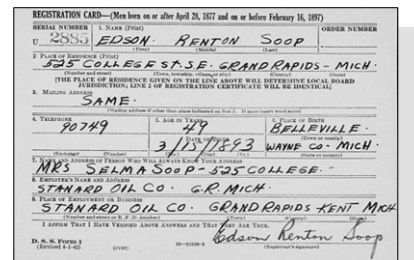 REGISTRATION CARD—(Men born on or after April 28, 1877 and on or before February 16, 1897)
SERIAL NUMBER 1. NAME (Print) ORDER NUMBER
U 2885 EDSON RENTON SOOP
(First) (Middle) (Last)
2. PLACE OF RESIDENCE (Print)
525 COLLEGE ST. S.E. GRAND RAPIDS - MICH.
(Number and street) (Town, township, village, or city) (County) (State)
[THE PLACE OF RESIDENCE GIVEN ON THE LINE ABOVE WILL DETERMINE LOCAL BOARD
JURISDICTION; LINE 2 OF REGISTRATION CERTIFICATE WILL BE IDENTICAL]
3. MAILING ADDRESS
SAME.
[Mailing address if other than place indicated on line 2. If same insert word same]
4. TELEPHONE 5. AGE IN YEARS 6. PLACE OF BIRTH
90749 49 BELLEVILLE.
DATE OF BIRTH (Town or county)
3/15/1893 WAYNE CO. MICH.
(Exchange) (Number) (Mo.) (Day) (Yr.) (State or country)
7. NAME AND ADDRESS OF PERSON WHO WILL ALWAYS KNOW YOUR ADDRESS
MRS SELMA SOOP - 525 COLLEGE.
8. EMPLOYER'S NAME AND ADDRESS
STANARD OIL CO. G.R. MICH.
9. PLACE OF EMPLOYMENT OR BUSINESS
STANARD OIL CO. GRAND RAPIDS - KENT MICH
(Number and street or R. F. D. number) (Town) (County) (State)
I AFFIRM THAT I HAVE VERIFIED ABOVE ANSWERS AND THAT THEY ARE TRUE.
D. S. S. Form 1 Edson Renton Soop
(Revised 4-1-42) (over) (Registrant's signature)